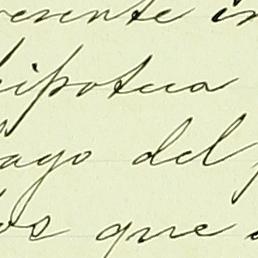 resente in
hipoteca
pago del p
os que